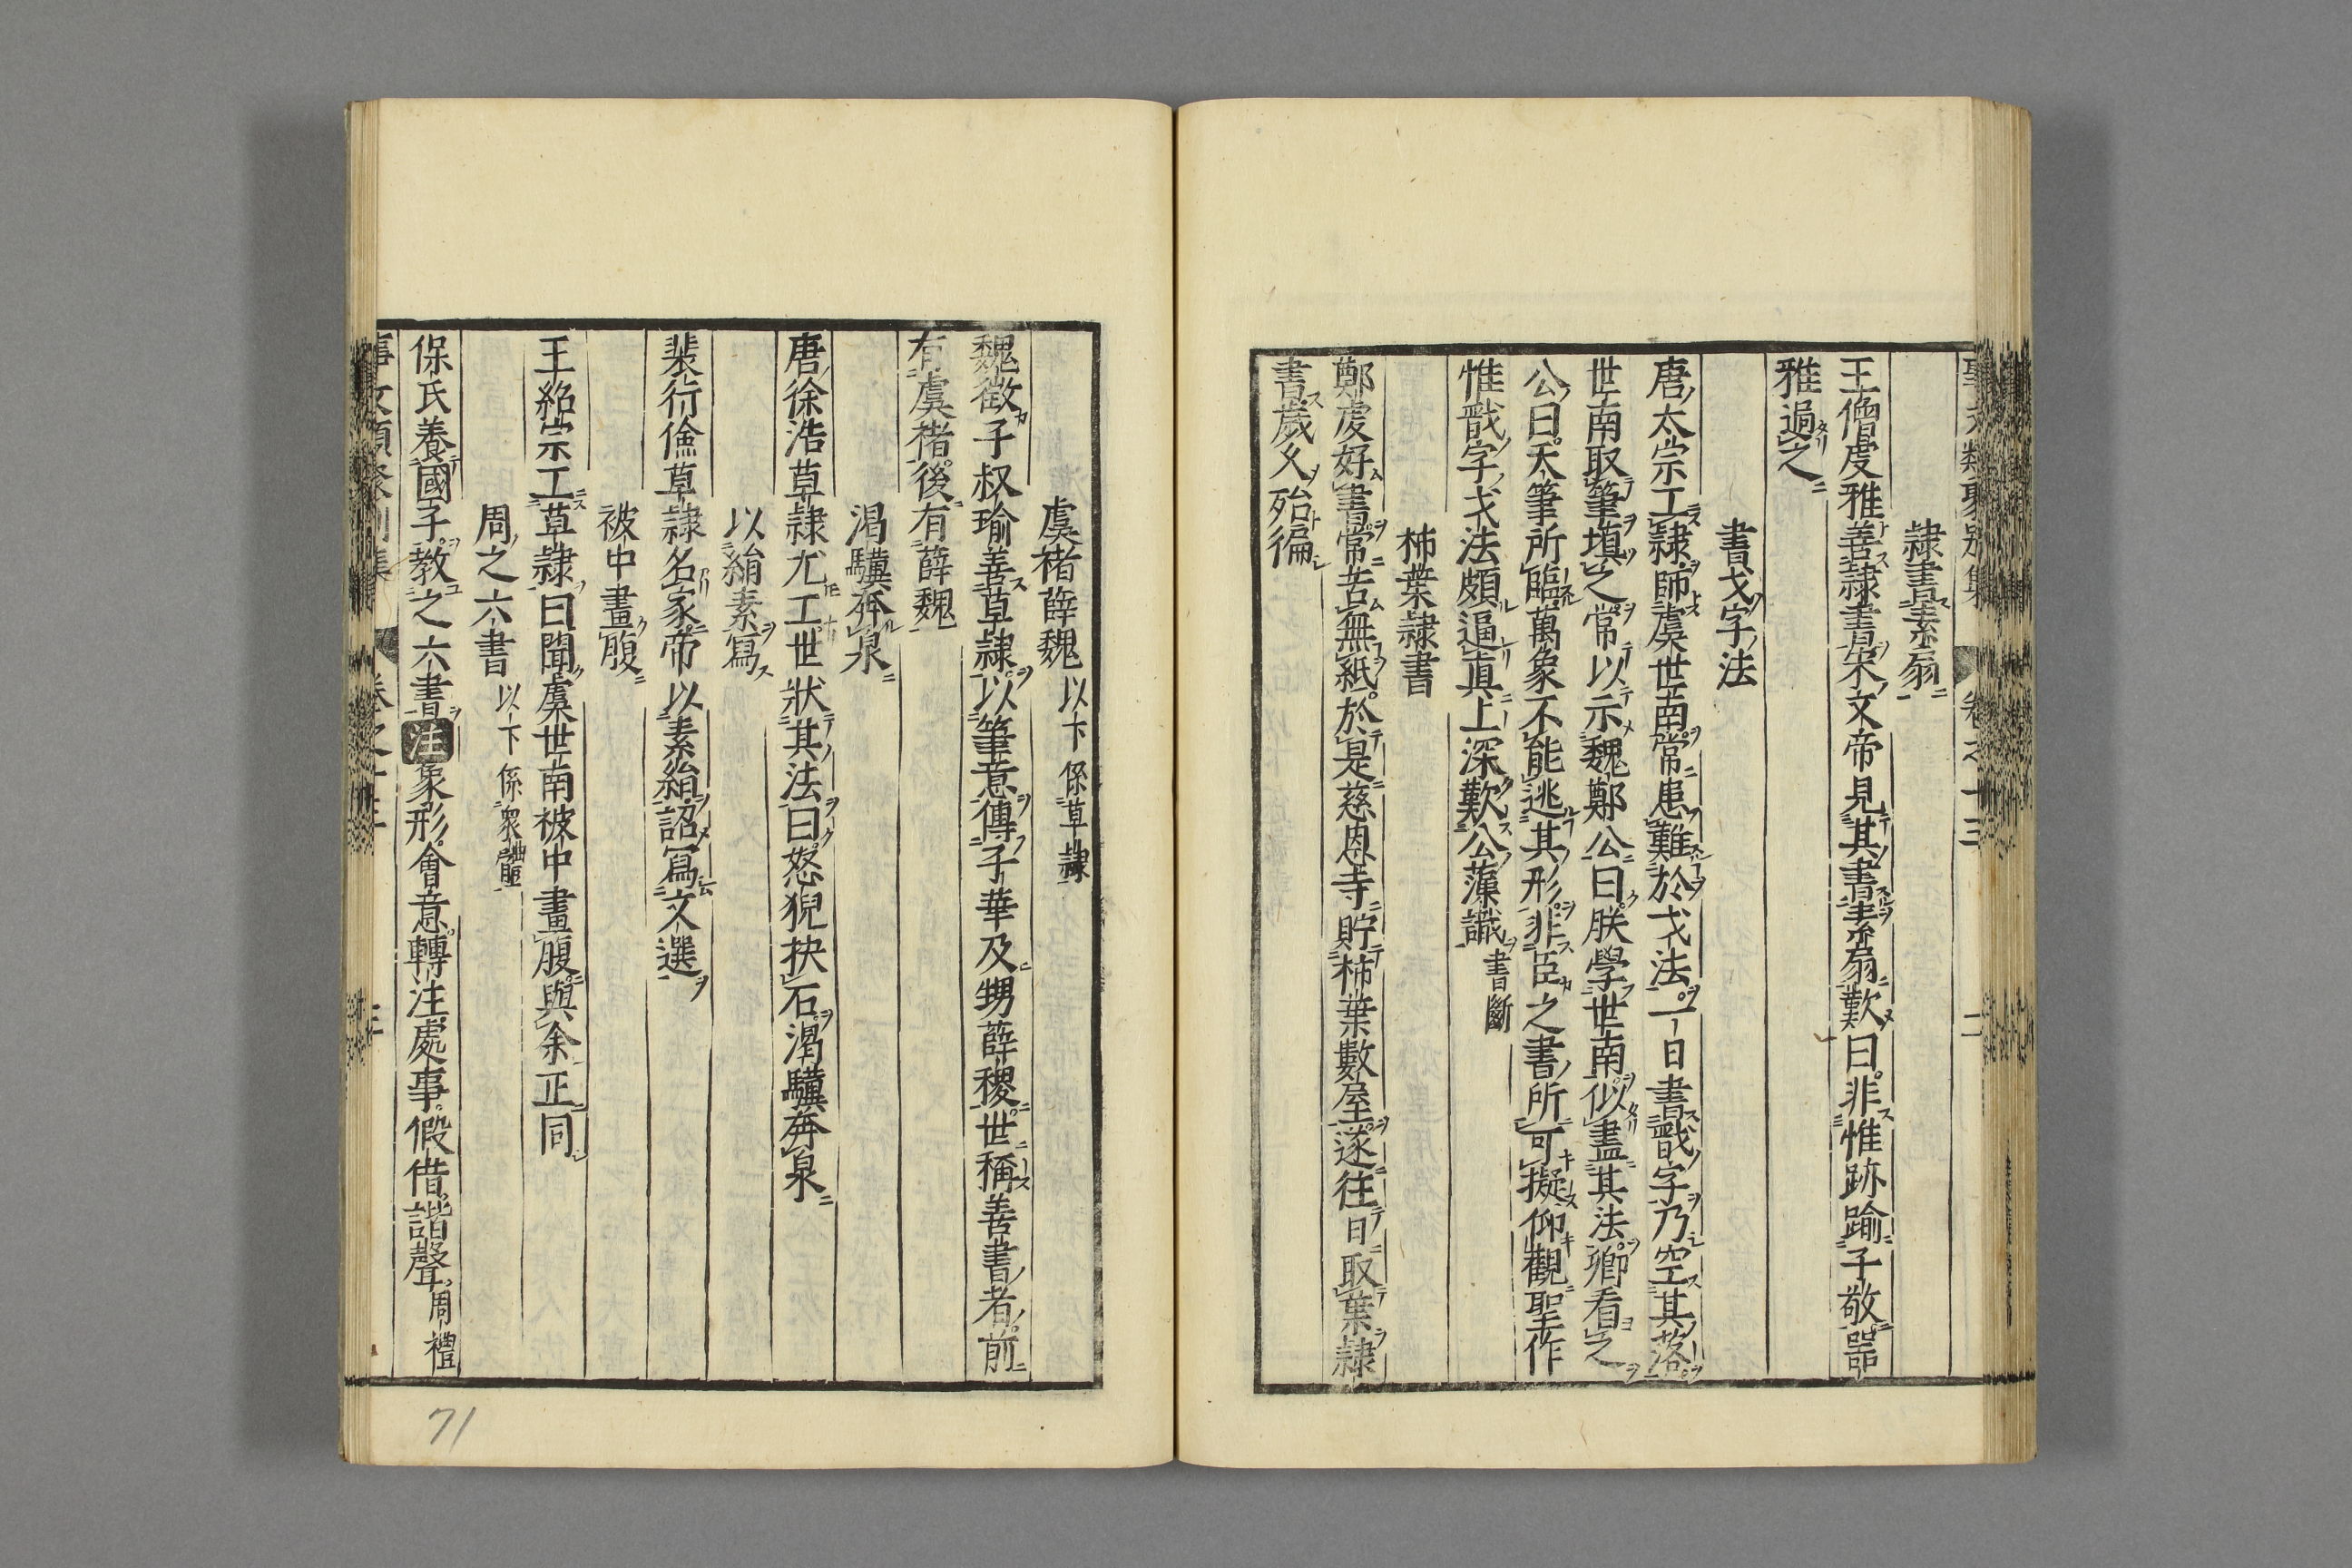 隷書書素扇
王僧虔雅善隷書宋文帝見其書素扇歎曰非惟跡踰子敬器
雅過之
書戈字法
唐太宗工隷師虞世南常患難於戈法一日書戩字乃空其落
世南取筆塡之常以示魏鄭公曰朕學世南似盡其法卿看之
公曰天筆所臨萬象不能逃其形非臣之書所可擬仰觀聖作
惟戩字戈法頗逼真上深歎公藻識書斷
柿葉隷書
鄭虔好書常苦無紙於是慈恩寺貯柿葉數屋遂往日取葉隷
書歲久殆徧
卷之十三
二
虞褚薛魏以下係草隷
魏徵子叔瑜善草隷以筆意傳子華及甥薛稷世稱善書者前
有虞褚後有薛魏
渴驥奔泉
唐徐浩草隷尤工世狀其法曰怒猊抉石渴驥奔泉
以絹素寫
裴行儉草隷名家帝以素絹詔寫文選
被中畫腹
王紹宗工草隷曰聞虞世南被中畫腹與余正同
周之六書以下係衆體
保氏養國子教之六書注象形會意轉注處事假借諧聲周禮
三
71